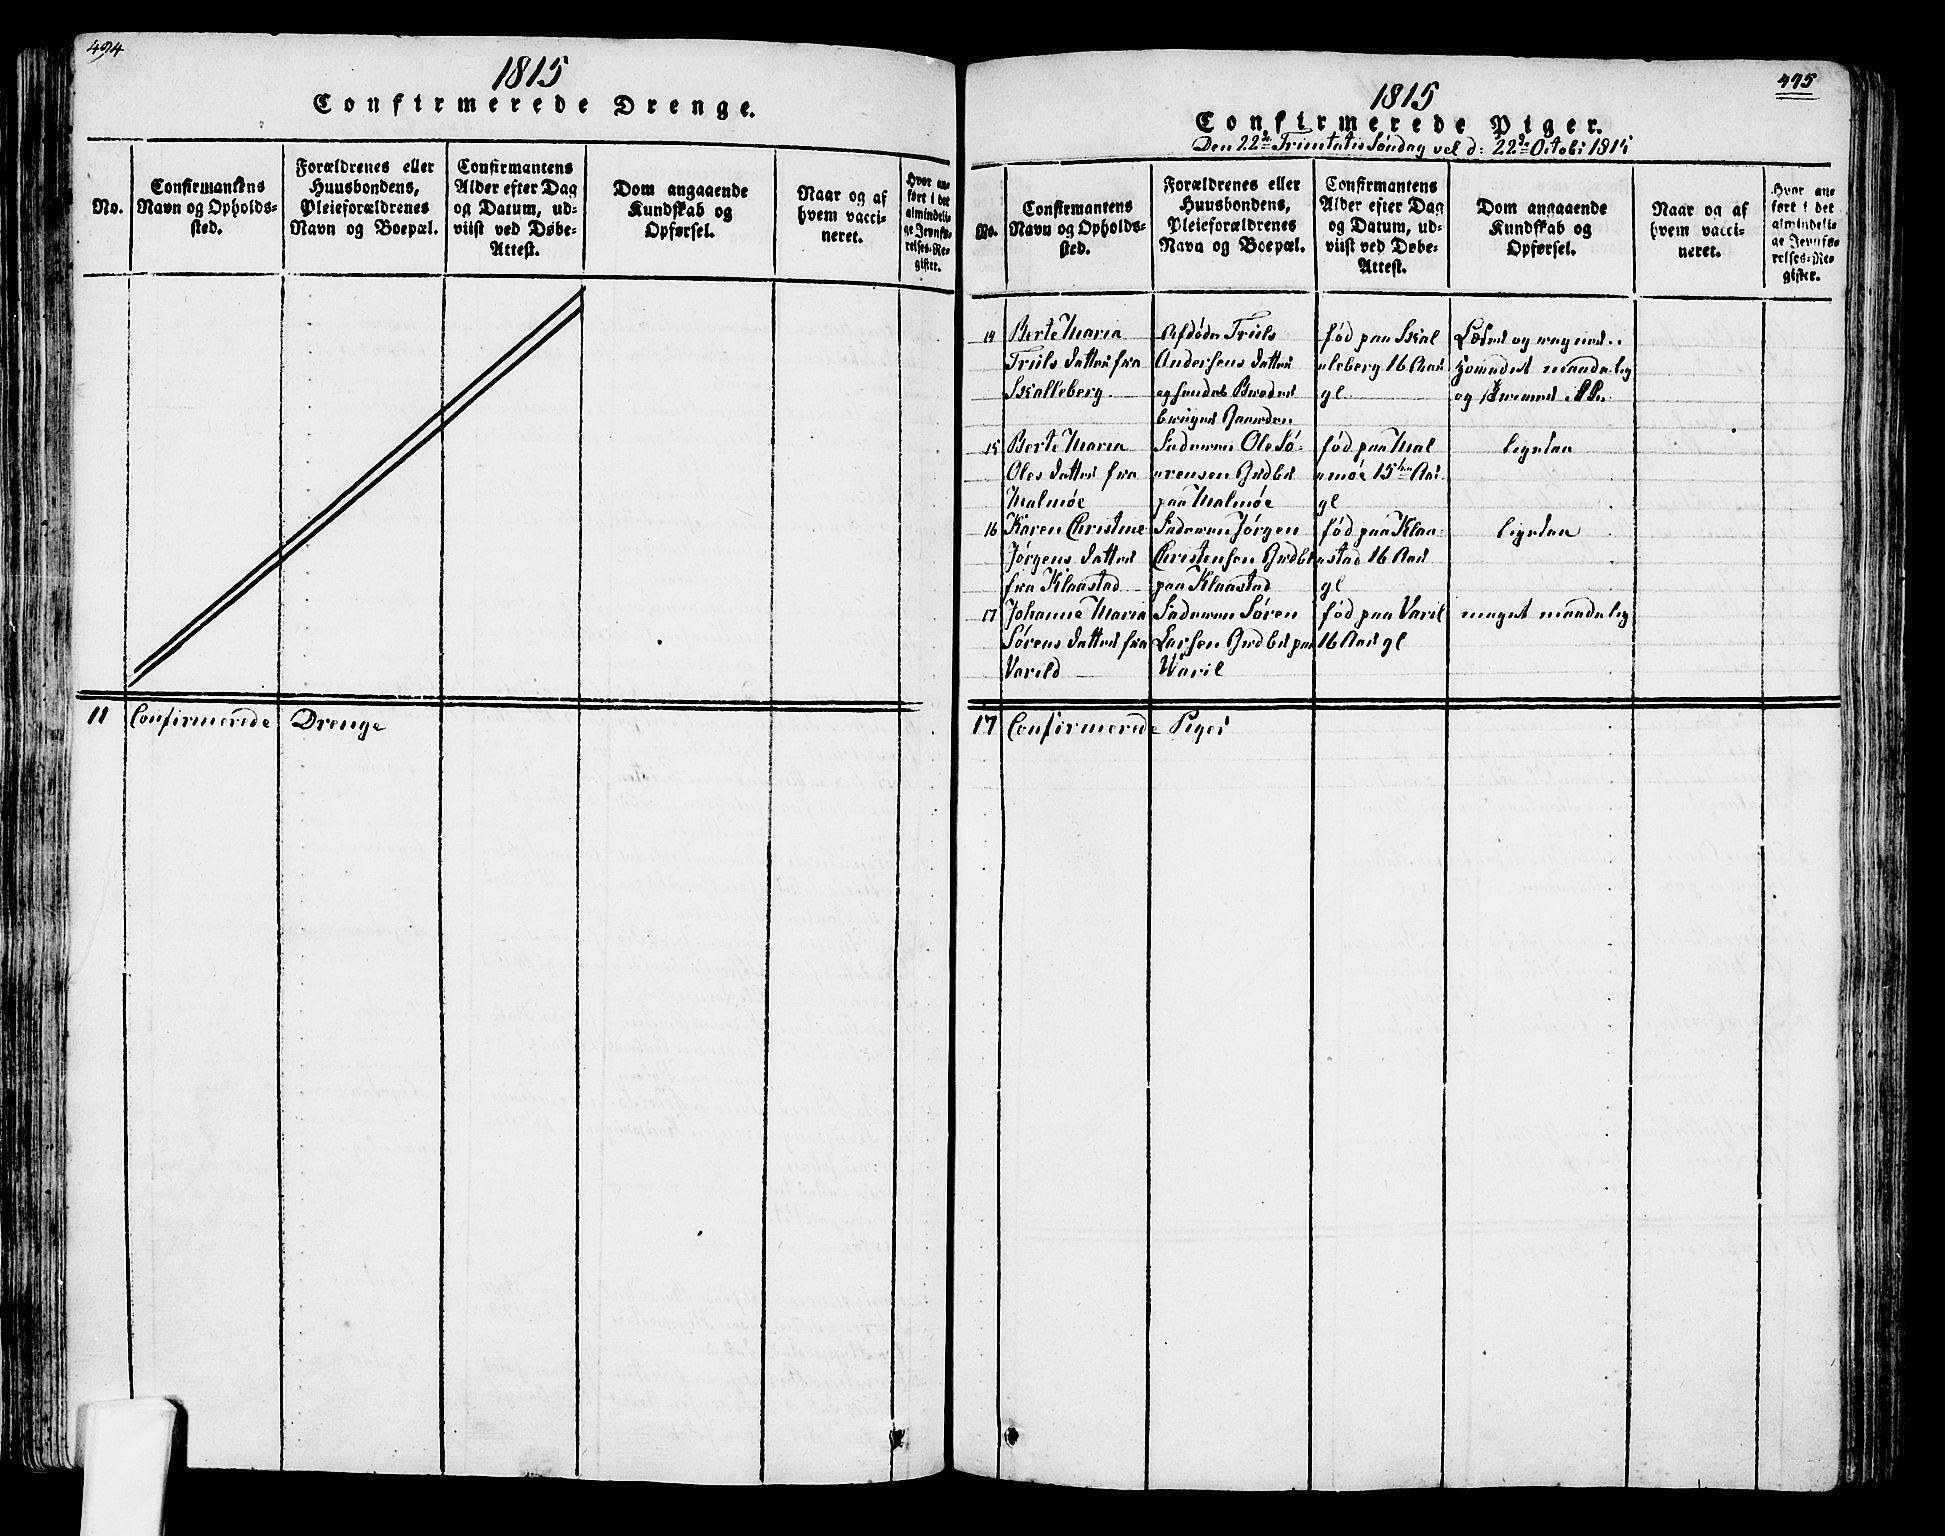 494
1815
Confirmerede Drenge.
No.
Confirmantens
Navn og Opholds-
sted.
Forældrenes eller
Huusbondens,
Pleieforældrenes
Navn og Boepæl.
Confirmantens
Alder efter Dag
og Datum, ud-
viist ved Døbe-
Attest.
Dom angaaende
Kundskab og
Opførsel.
Naar og af
hvem vacci-
neret.
Hvor an-
ført i det
almindeli-
ge Jevnfø-
relses-Re-
gister.
11 Confirmerede Drenge
495
1815
Confirmerede Piger.
Den 22de Trinitatis Søndag vel d: 22de Octobr 1815
No.
Confirmantens
Navn og Opholds-
sted.
Forældrenes eller
Huusbondens,
Pleieforældrenes
Navn og Boepæl.
Confirmantens
Alder efter Dag
og Datum, ud-
viist ved Døbe-
Attest.
Dom angaaende
Kundskab og
Opførsel.
Naar og af
hvem vacci-
neret.
Hvor an-
ført i det
almindeli-
ge Jevnfø-
relses-Re-
gister.
14 Berte Maria
Truls datter fra
Skalleberg
Afdøde Truls
Andersens datter
og hendes
fød paa Skal
leberg 16 Aar
gl
og
maadelig
og
15 Berte Maria
Oles datter fra
Malmøe
Faderen Ole Sø-
rensen
paa Malmøe
fød paa Mal
møe 15 Aar
gl
ligedan
16 Karen Christine
Jørgens datter
fra Klaastad
Faderen Jørgen
Christensen
paa Klaastad
fød paa Klaa
stad 16 Aar
gl
ligedan
17 Johanne Maria
Sørens datter fra
Varild
Faderen Søren
Larsen paa
Waril
fød paa Varil
16 Aar gl
meget maadelig
17 Confirmerede Piger